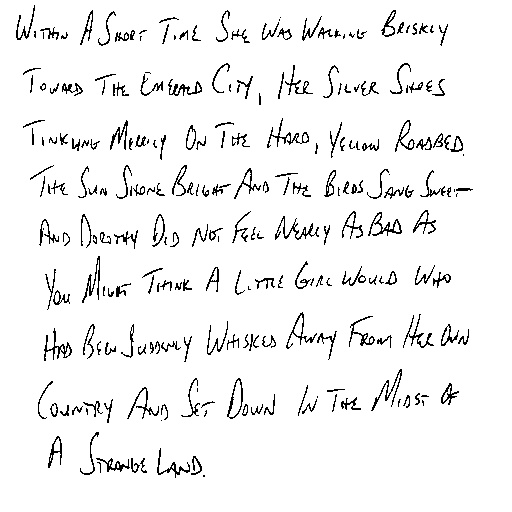 Within A Short Time She Was Walking Briskly
Toward The Emerald City, Her Silver Shoes
Tinkling Merrily On The Hard, Yellow Roadbed.
The Sun Shone Bright And The Birds Sang Sweet
And Dorothy Did Not Feel Nearly As Bad As
You Might Think A Little Girl Would Who
Had Been Suddenly Whisked Away From Her Own
Country And Set Down In The Midst Of
A Strange Land.